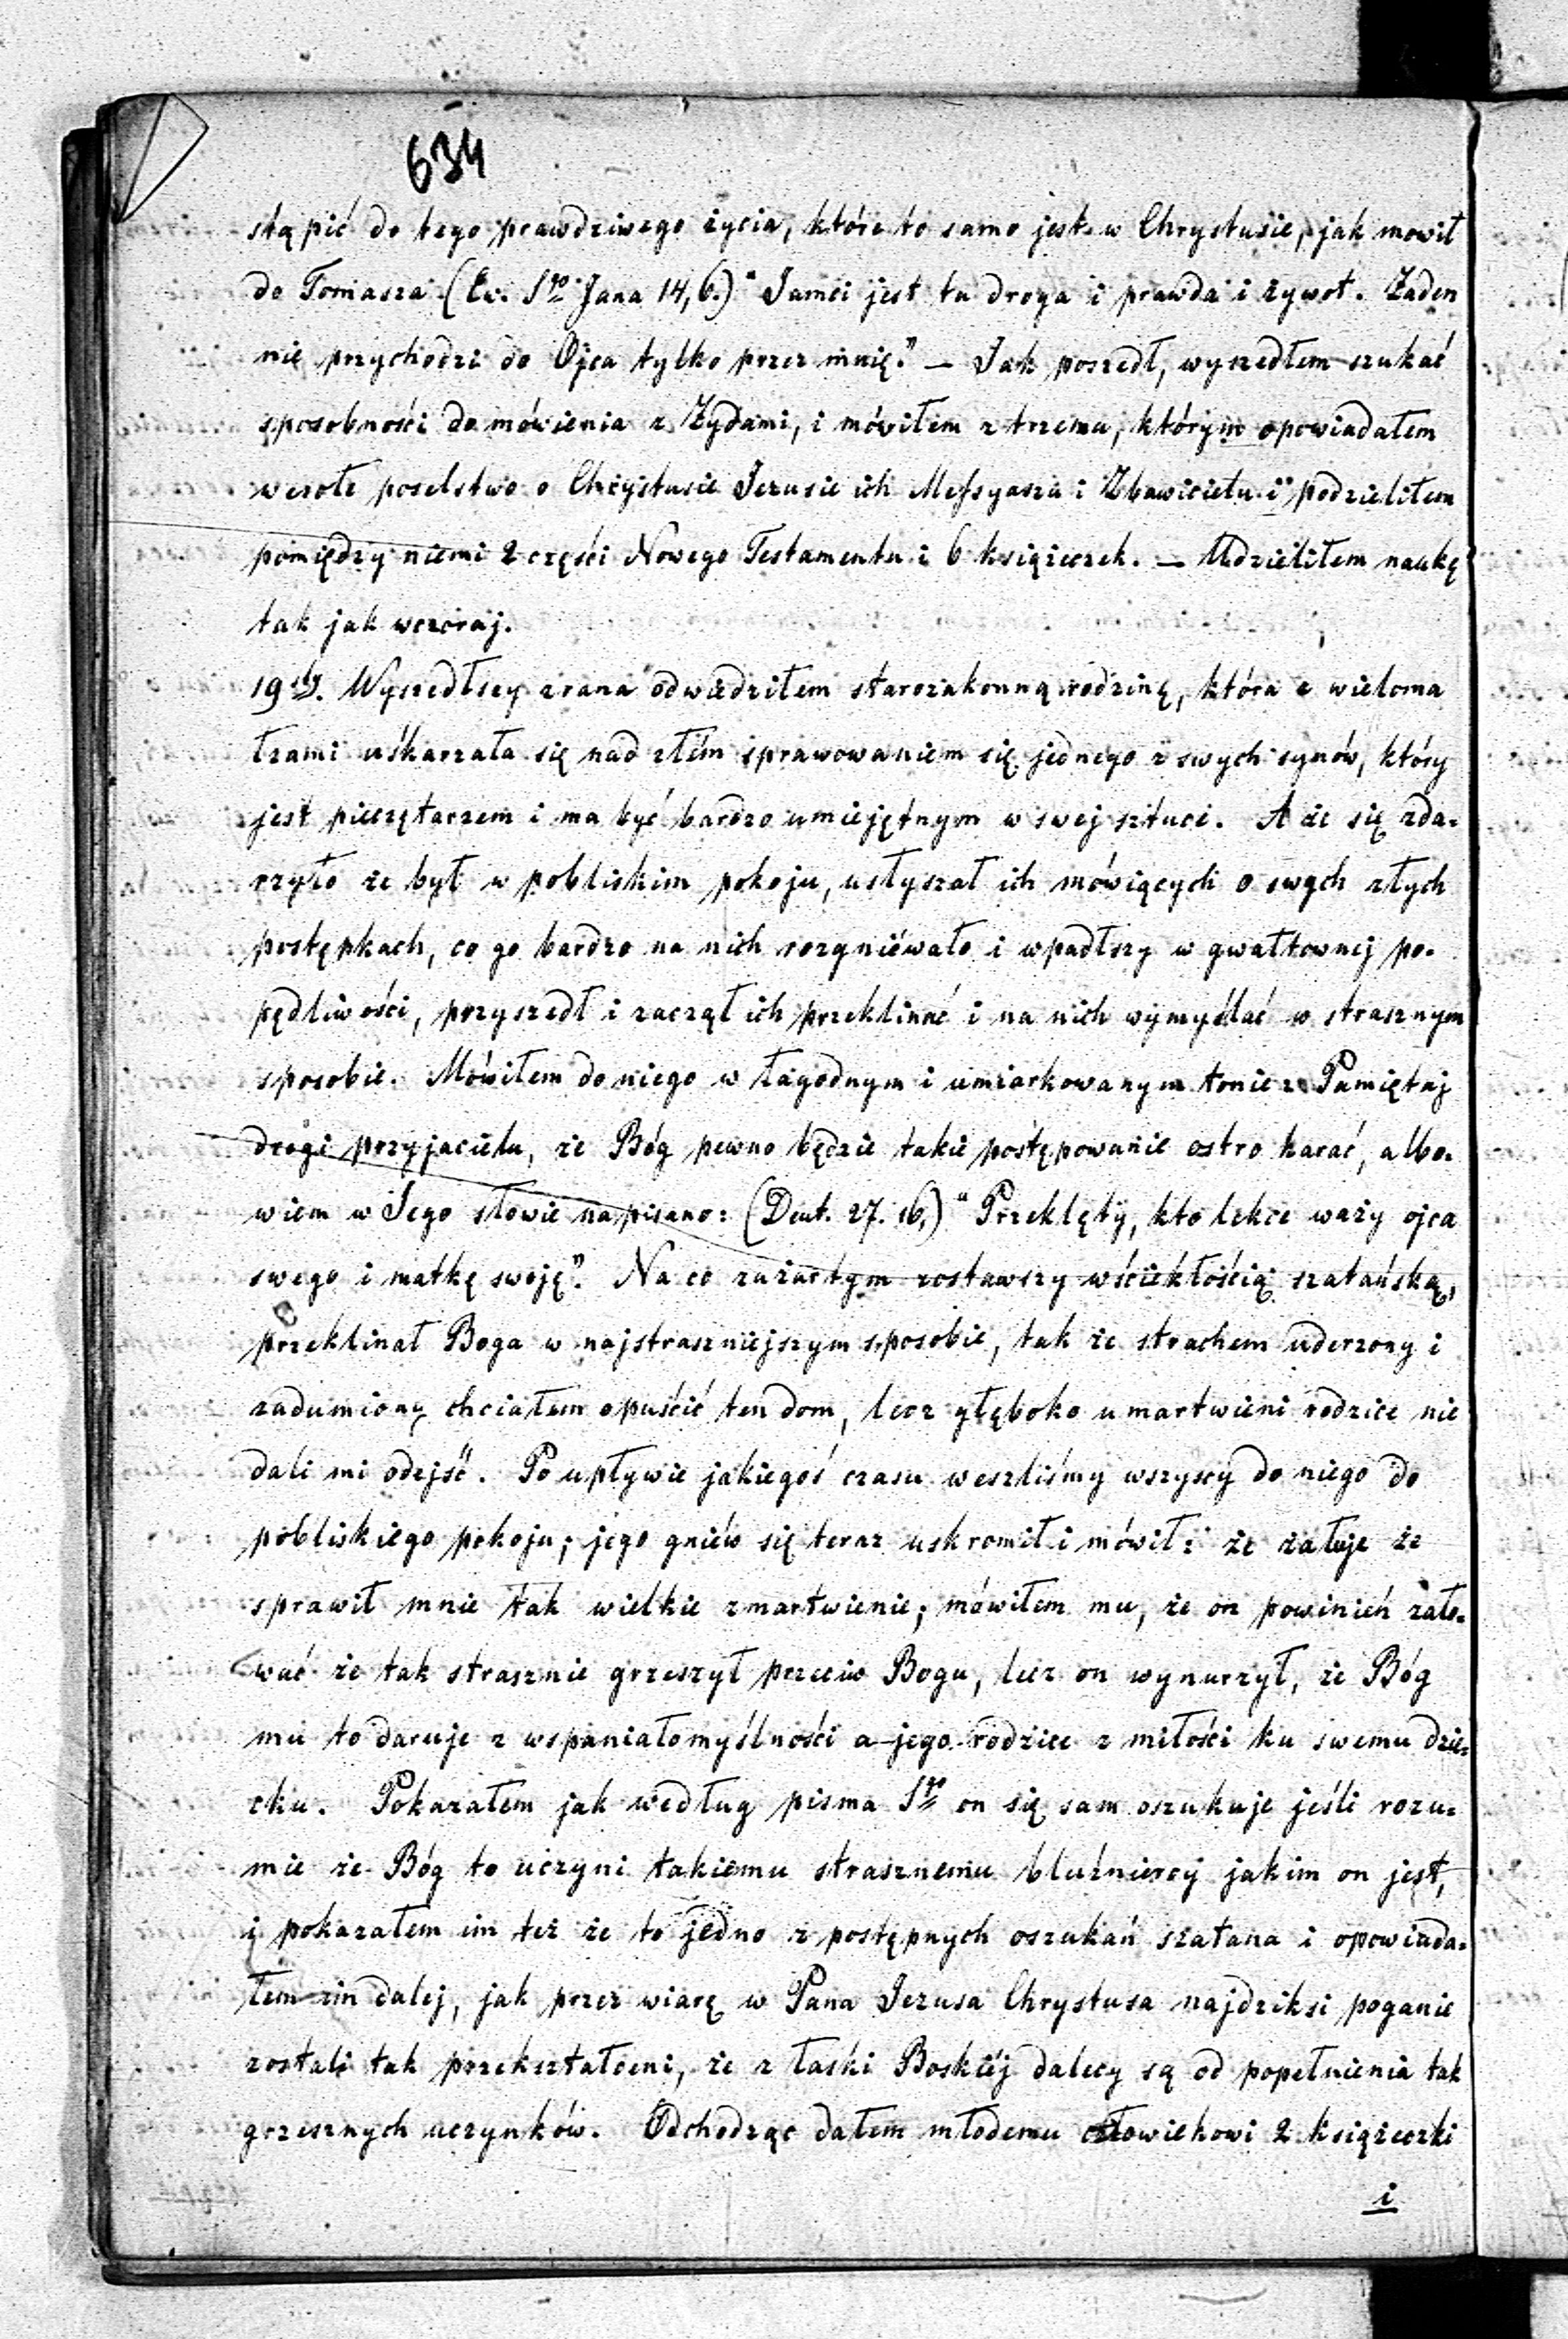 634
stąpić do tego prawdziwego życia, które to samo jest w Chrystusie, jak mowił
do Tomasza (Ew. Sgo Jana 14, 6.) "Jamci jest ta droga i prawda i żywot. Żaden
nie przychodzi do Ojca tylko przez mnię." — Jak poszedł, wyszedłem szukać
sposobności do mówienia z Żydami, i mówiłem z trzema, którym opowiadałem
wesołe poselstwo o Chrystusie Jezusie ich Messyaszu i Zbawicielu i podzieliłem
pomiędzy niemi 2 części Nowego Testamentu i 6 książeczek. — Udzieliłem naukę
tak jak wczoraj.
19ty. Wyszedłszy zrana odwiedziłem starozakonną rodzinę, która z wieloma
łzami uskarzała się nad złém sprawowaniem się jednego z swych synów, który
jest pieczętarzem i ma być bardzo umiejętnym w swej sztuce. A że się zda=
rzyło że był w pobliskim pokoju, usłyszał ich mówiących o swych złych
postępkach, co go bardzo na nich rozgniéwało i wpadłszy w gwałtownej po=
pędliwości, przyszedł i zaczął ich przeklinać i na nich wymyślać w strasznym
sposobie. Mówiłem do niego w łagodnym i umiarkowanym tonie: Pamiętaj
drogi przyjacielu, że Bóg pewno będzie takie postępowanie ostro karać, albo=
wiem w Jego słowie napisano: (Deut. 27. 16,) "Przeklęty, kto lekce waży ojca
swego i matkę swoję". Na co zażartym zostawszy wściekłością szatańską,
przeklinał Boga w najstraszniejszym sposobie, tak że strachem uderzony i
zadumiony chciałem opuścić ten dom, lecz głęboko umartwieni rodzice nie
dali mi odejść. Po upływie jakiegoś czasu weszliśmy wszyscy do niego do
pobliskiego pokoju; jego gniéw się teraz uskromił i mówił: że żałuje że
sprawił mnie tak wielkie zmartwienie; mówiłem mu, że on powinień żało=
wać że tak strasznie grzeszył przeciw Bogu, lecz on wynurzył, że Bóg
mu to daruje z wspaniałomyślności a jego rodzice z miłości ku swemu dzie=
cku. Pokazałem jak według pisma Sgo on się sam oszukuje jeśli rozu=
mie że Bóg to uczyni takiemu strasznemu bluźniercy jakim on jest,
i pokazałem im też że to jedno z postępnych oszukań szatana i opowiada=
łem im dalej, jak przez wiarę w Pana Jezusa Chrystusa najdziksi poganie
zostali tak przekształceni, że z łaski Boskiéj dalecy są od popełnienia tak
grzesznych uczynków. Odchodząc dałem młodemu człowiekowi 2 książeczki
i